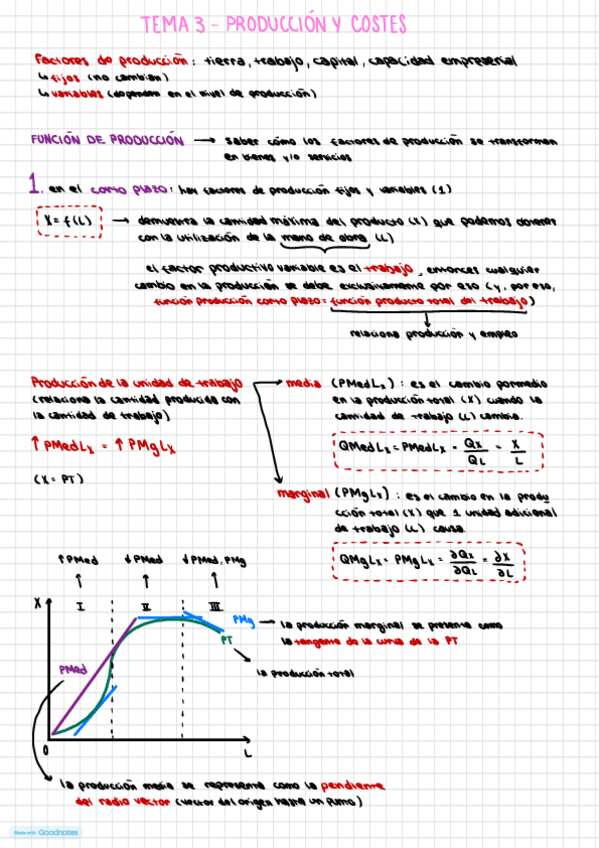 TEMA 3 - PRODUCCIÓN Y COSTES
Factores de producción: tierra, trabajo, capital, capacidad empresarial
↳ fijos (no cambian)
↳ variables (dependen en el nivel de producción)
FUNCIÓN DE PRODUCCIÓN → saber cómo los factores de producción se transforman
en bienes y/o servicios
1. en el corto plazo: hay factores de producción fijos y variables (1)
X = f(L) → demuestra la cantidad máxima del producto (X) que podemos obtener
con la utilización de la mano de obra (L)
el factor productivo variable es el trabajo, entonces cualquier
cambio en la producción se debe exclusivamente por eso (y, por eso,
función producción corto plazo = función producto total del trabajo)
relaciona producción y empleo
Producción de la unidad de trabajo
(relaciona la cantidad producida con
la cantidad de trabajo)
↑ PMedLx = ↑ PMgLx
(X = PT)
media (PMedLx): es el cambio pormedio
en la producción total (X) cuando la
cantidad de trabajo (L) cambia.
QMedLx = PMedLx = Qx/QL = X/L
marginal (PMgLx): es el cambio en la produ
cción total (X) que 1 unidad adicional
de trabajo (L) causa.
QMgLx = PMgLx = ∂Qx/∂QL = ∂X/∂L
↑PMed ↓PMed ↓PMed, PMg
X I II III
PMg → la producción marginal se presenta como
la tangente de la curva de la PT
PT
la producción total
PMed
0 L
la producción media se representa como la pendiente
del radio vector (vector del origen hasta un punto)
Made with Goodnotes